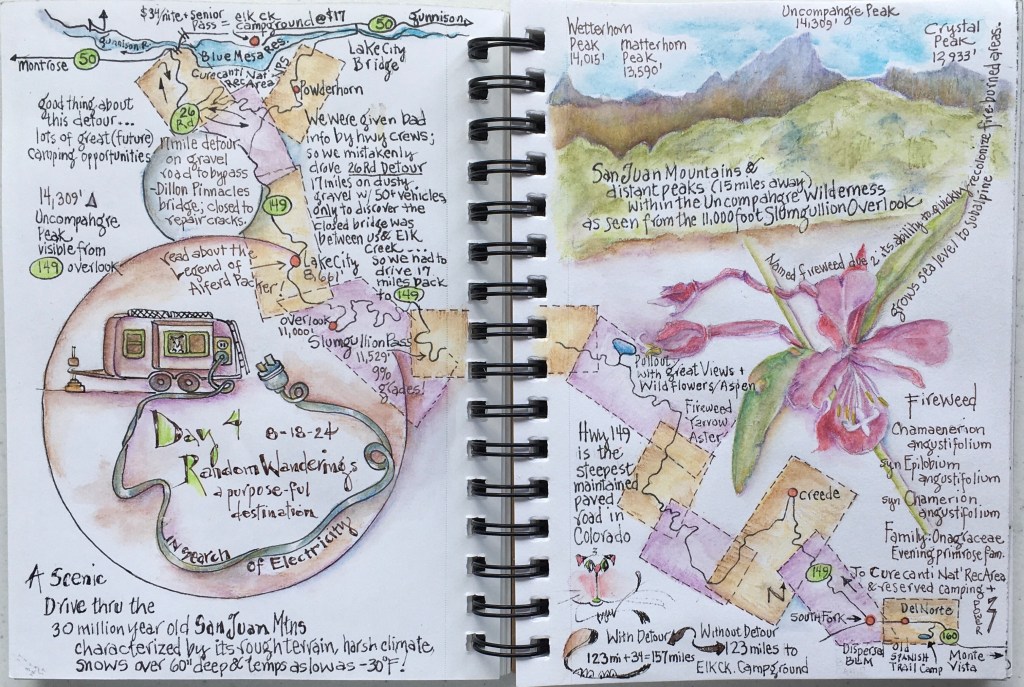 $34/nite + senior
pass = elk ck
campground @ $17
Gunnison
50
Gunnison R.
Blue Mesa Res.
Montrose
50
Curecanti Nat'
Rec Area
NPS
Lake City
Bridge
Powderhorn
good thing about
this detour...
lots of great (future)
camping opportunities
26
Rd
17 mile detour
on gravel
road to bypass
Dillon Pinnacles
bridge; closed to
repair cracks.
We were given bad
info by hwy crews;
so we mistakenly
drove 26 Rd Detour
17 miles on dusty
gravel w/ 50+ vehicles
only to discover the
closed bridge was
between us & Elk
Creek...
so we had to
drive 17
miles back
to 149
14,309'
Uncompahgre
Peak
visible from
149 overlook
149
read about the
legend of
Alferd Packer
Lake City
8,661'
overlook
11,000'
Slumgullion Pass
11,529'
9%
grades!
Day 4
8-18-24
Random Wanderings
a purpose-ful
destination
IN Search
of Electricity
A Scenic
Drive thru the
30 million year old San Juan Mtns
characterized by its rough terrain, harsh climate,
snows over 60" deep & temps as low as -30°F!
Wetterhorn
Peak
14,015'
Matterhorn
Peak
13,590'
Uncompahgre Peak
14,309'
Crystal
Peak
12,933'
San Juan Mountains &
distant peaks (15 miles away)
within the Uncompahgre Wilderness
as seen from the 11,000 foot Slumgullion Overlook
Named fireweed due 2 its ability to quickly recolonize fires burned areas.
grows sea level to subalpine
Pullout
with great Views +
Wildflowers/Aspen
Fireweed
Yarrow
Aster
Hwy 149
is the
steepest
maintained
paved
road in
Colorado
Fireweed
Chamaenerion
angustifolium
syn Epilobium
angustifolium
syn Chamerion
angustifolium
Family: Onagraceae
Evening primrose fam.
Creede
N
149
To Curecanti Nat' Rec Area
& reserved camping +
power
South Fork
Del Norte
160
Dispersed
BLM
Old
Spanish
Trail Camp
Monte
Vista
With Detour
123 mi + 34 = 157 miles
Without Detour
123 miles to
Elk CK. Campground